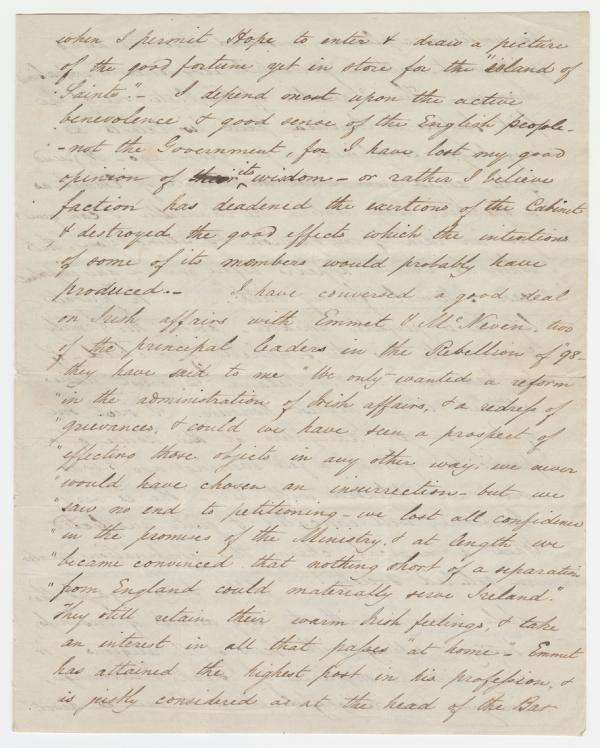 when I permit Hope to enter & draw a picture
of the good fortune yet in store for the "island of
Saints".- I depend most upon the active
benevolence & good sense of the English people-
-not the Government, for I have lost my good
opinion of their its wisdom - or rather I believe
faction has deadened the exertions of the Cabinet
& destroyed the good effects which the intentions
of some of its members would probably have
produced.- I have conversed a good deal
on Irish affairs with Emmet & McNeven, two
of the principal leaders in the Rebellion of "98-
they have said to me "We only wanted a reform
"in the administration of Irish affairs, & a redress of
"grievances, & could we have seen a prospect of
"effecting those objects in any other way, we never
"would have chosen an insurrection - but we
"saw no end to petitioning - we lost all confidence
"in the promises of the Ministry, & at length we
"became convinced that nothing short of a separation
"from England could materially serve Ireland."
They still retain their warm Irish feelings, & take
an interest in all that passes "at home - Emmet
has attained the highest post in his profession, &
is justly considered as at the head of the Bar